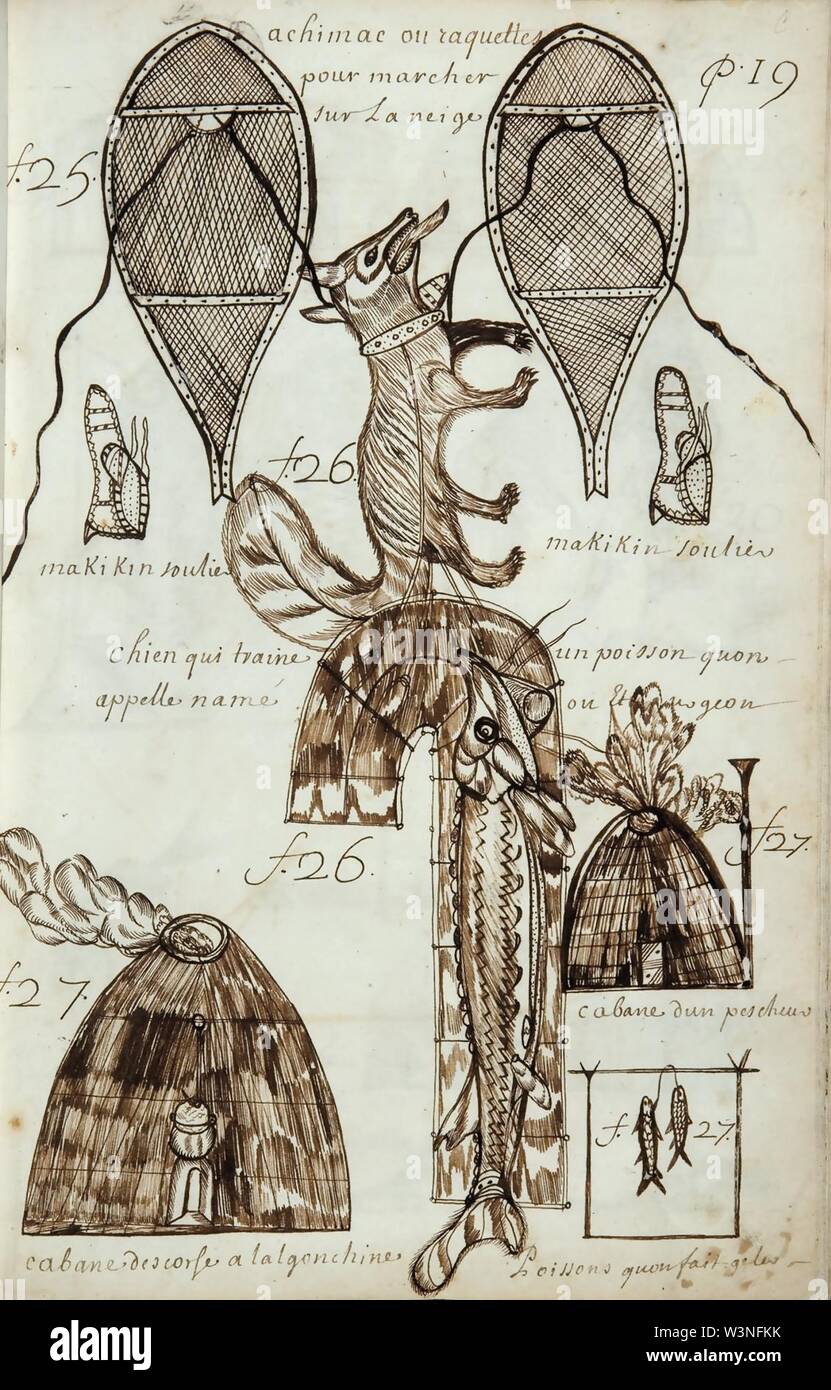 achimac ou raquettes
pour marcher
sur La neige
P. 19
f. 25.
f. 26.
makikin soulier
makikin soulier
chien qui traine un poisson quon
appelle namé ou Eturgeon
f. 26.
f. 27.
f. 27.
cabane dun pescheur
f. 27.
cabane descorse a lalgonchine
Poissons quon fait geler
alamy
Image ID: W3NFKK
www.alamy.com